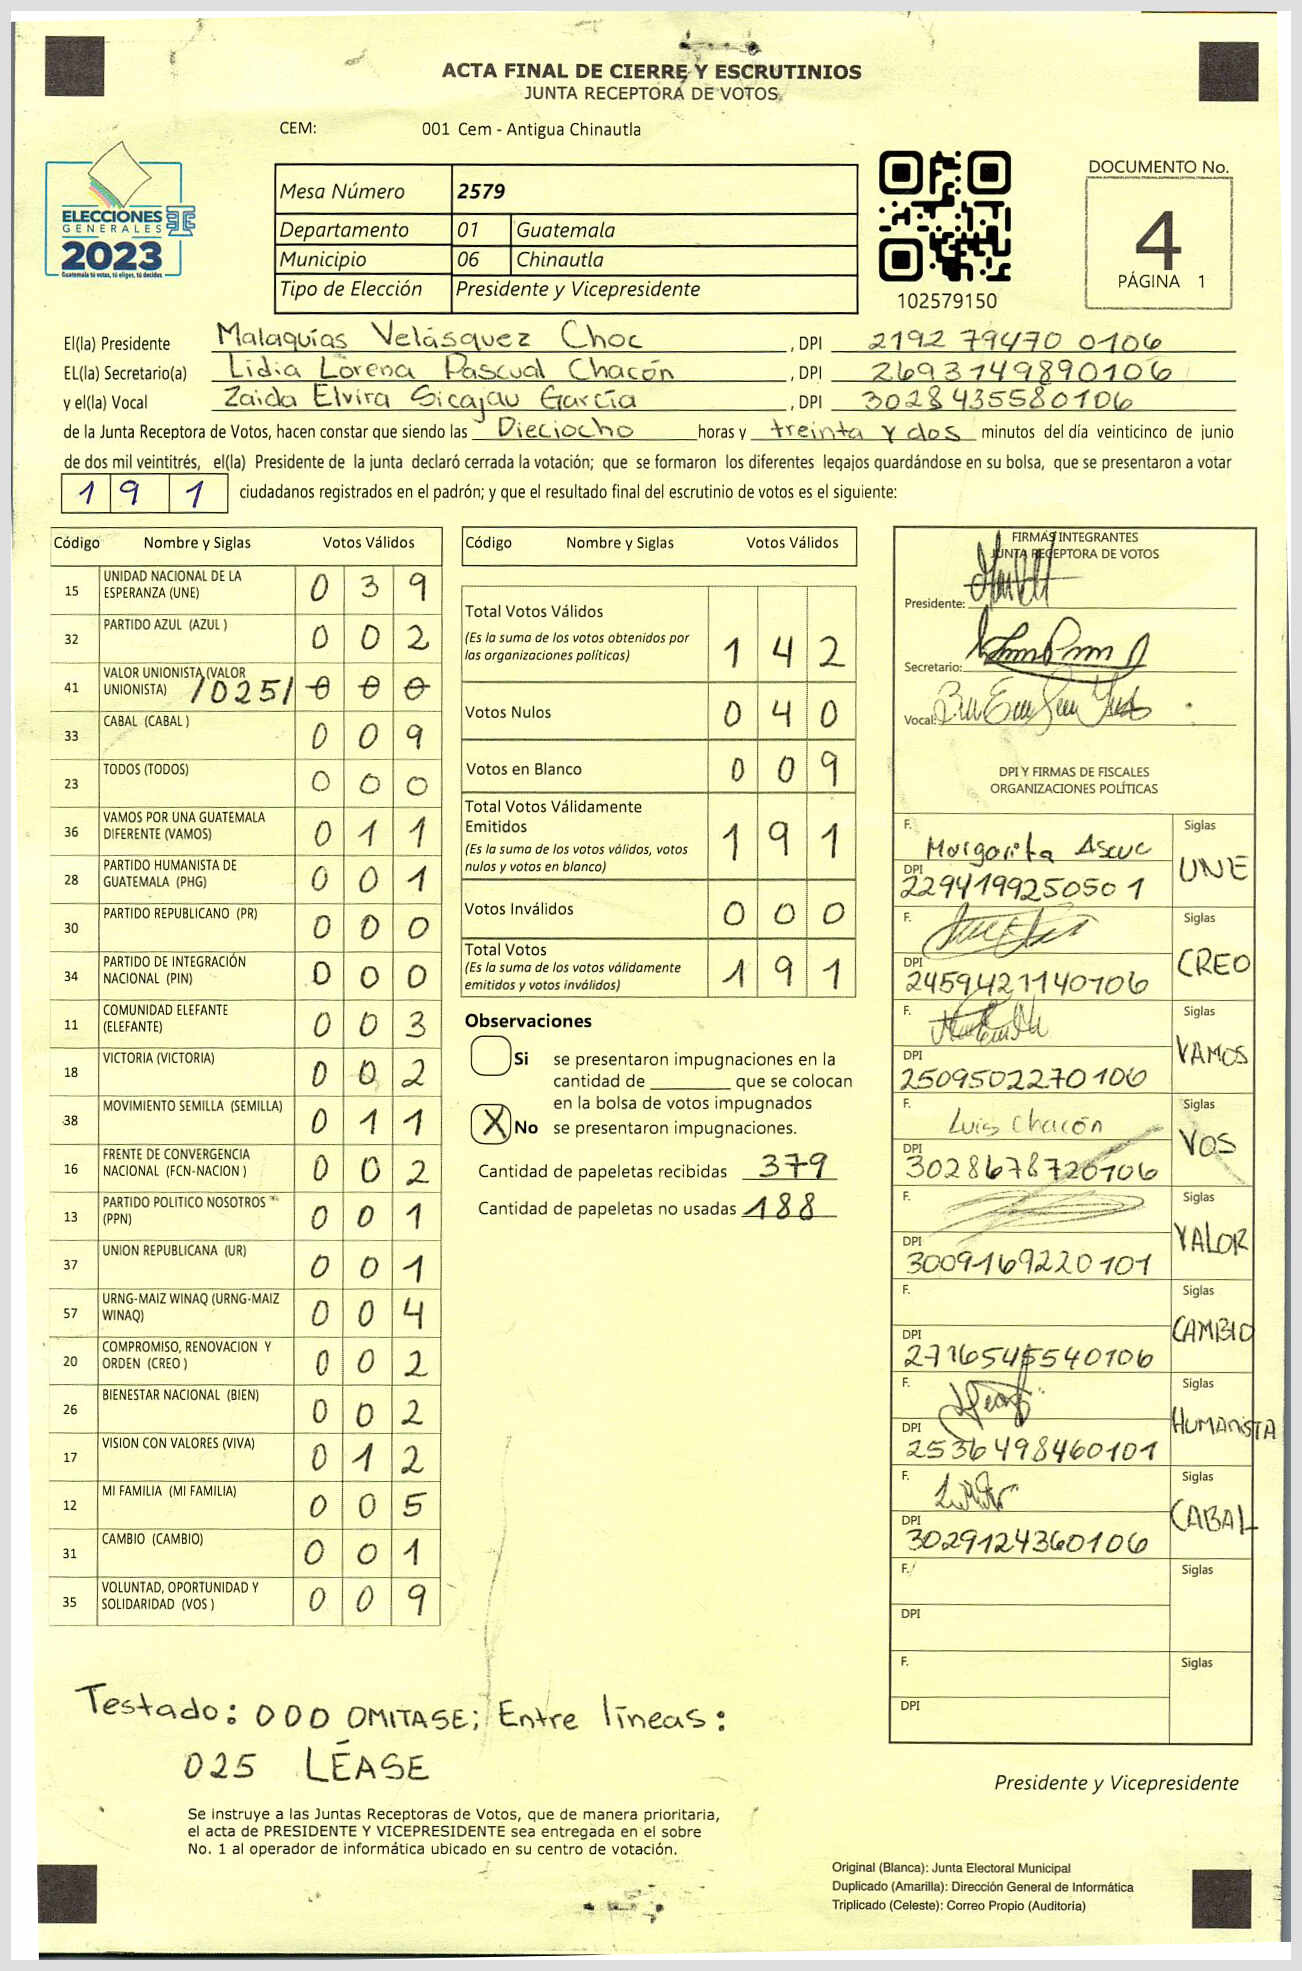 ACTA FINAL DE CIERRE Y ESCRUTINIOS
JUNTA RECEPTORA DE VOTOS
CEM: 001 Cem - Antigua Chinautla
ELECCIONES
GENERALES
2023
Guatemala tú votas, tú eliges, tú decides
Mesa Número 2579
Departamento 01 Guatemala
Municipio 06 Chinautla
Tipo de Elección Presidente y Vicepresidente
102579150
DOCUMENTO No.
4
PÁGINA 1
El(la) Presidente Malaquías Velásquez Choc , DPI 2192 79470 0106
EL(la) Secretario(a) Lidia Lorena Pascual Chacón , DPI 2693149890106
y el(la) Vocal Zaida Elvira Sicajau García , DPI 3028435580106
de la Junta Receptora de Votos, hacen constar que siendo las Dieciocho horas y treinta y dos minutos del día veinticinco de junio
de dos mil veintitrés, el(la) Presidente de la junta declaró cerrada la votación; que se formaron los diferentes legajos guardándose en su bolsa, que se presentaron a votar
1 9 1 ciudadanos registrados en el padrón; y que el resultado final del escrutinio de votos es el siguiente:
Código Nombre y Siglas Votos Válidos
15 UNIDAD NACIONAL DE LA ESPERANZA (UNE) 0 3 9
32 PARTIDO AZUL (AZUL ) 0 0 2
41 VALOR UNIONISTA (VALOR UNIONISTA) /025/ 0 0 0
33 CABAL (CABAL ) 0 0 9
23 TODOS (TODOS) 0 0 0
36 VAMOS POR UNA GUATEMALA DIFERENTE (VAMOS) 0 1 1
28 PARTIDO HUMANISTA DE GUATEMALA (PHG) 0 0 1
30 PARTIDO REPUBLICANO (PR) 0 0 0
34 PARTIDO DE INTEGRACIÓN NACIONAL (PIN) 0 0 0
11 COMUNIDAD ELEFANTE (ELEFANTE) 0 0 3
18 VICTORIA (VICTORIA) 0 0 2
38 MOVIMIENTO SEMILLA (SEMILLA) 0 1 1
16 FRENTE DE CONVERGENCIA NACIONAL (FCN-NACION ) 0 0 2
13 PARTIDO POLITICO NOSOTROS (PPN) 0 0 1
37 UNION REPUBLICANA (UR) 0 0 1
57 URNG-MAIZ WINAQ (URNG-MAIZ WINAQ) 0 0 4
20 COMPROMISO, RENOVACION Y ORDEN (CREO ) 0 0 2
26 BIENESTAR NACIONAL (BIEN) 0 0 2
17 VISION CON VALORES (VIVA) 0 1 2
12 MI FAMILIA (MI FAMILIA) 0 0 5
31 CAMBIO (CAMBIO) 0 0 1
35 VOLUNTAD, OPORTUNIDAD Y SOLIDARIDAD (VOS ) 0 0 9
Código Nombre y Siglas Votos Válidos
Total Votos Válidos 1 4 2
(Es la suma de los votos obtenidos por
las organizaciones políticas)
Votos Nulos 0 4 0
Votos en Blanco 0 0 9
Total Votos Válidamente
Emitidos 1 9 1
(Es la suma de los votos válidos, votos
nulos y votos en blanco)
Votos Inválidos 0 0 0
Total Votos 1 9 1
(Es la suma de los votos válidamente
emitidos y votos inválidos)
Observaciones
Si se presentaron impugnaciones en la
cantidad de ________ que se colocan
en la bolsa de votos impugnados
X No se presentaron impugnaciones.
Cantidad de papeletas recibidas 379
Cantidad de papeletas no usadas 188
FIRMAS INTEGRANTES
JUNTA RECEPTORA DE VOTOS
Presidente:
Secretario:
Vocal:
DPI Y FIRMAS DE FISCALES
ORGANIZACIONES POLÍTICAS
F. Margarita Siglas
DPI 2294199250501 UNE
F. Siglas
DPI 2459421140106 CREO
F. Siglas
DPI 2509502270106 VAMOS
F. Luis Chacón Siglas
DPI 3028678720106 VOS
F. Siglas
DPI 3009169220101 VALOR
F. Siglas
DPI 2716545540106 CAMBIO
F. Siglas
DPI 2536498460101 HUMANISTA
F. Siglas
DPI 3029124360106 CABAL
F. Siglas
DPI
F. Siglas
DPI
Testado: 000 OMITASE; Entre líneas:
025 LÉASE
Presidente y Vicepresidente
Se instruye a las Juntas Receptoras de Votos, que de manera prioritaria,
el acta de PRESIDENTE Y VICEPRESIDENTE sea entregada en el sobre
No. 1 al operador de informática ubicado en su centro de votación.
Original (Blanca): Junta Electoral Municipal
Duplicado (Amarilla): Dirección General de Informática
Triplicado (Celeste): Correo Propio (Auditoria)